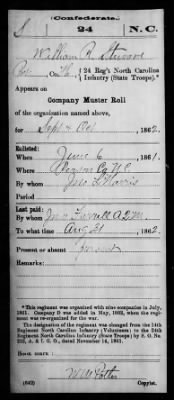 (Confederate.)
S 24 N.C.
William R. Stewart
Pvt, Co. H, 24 Reg't North Carolina Infantry (State Troops).*
Appears on
Company Muster Roll
of the organization named above,
for Sept & Oct, 1862.
Enlisted:
When June 6, 1861.
Where Person Co N.C.
By whom Jno. G. Harris
Period
Last paid:
By whom Jno Farrell A.Q.M.
To what time Aug 31, 1862.
Present or absent Present
Remarks:
*This regiment was organized with nine companies in July, 1861. Company D was added in May, 1862, when the regiment was re-organized for the war.
The designation of the regiment was changed from the 14th Regiment North Carolina Infantry (Volunteers) to the 24th Regiment North Carolina Infantry (State Troops) by S. O. No. 222, A. & I. G. O., dated November 14, 1861.
Book mark:
(642)
Copyist.